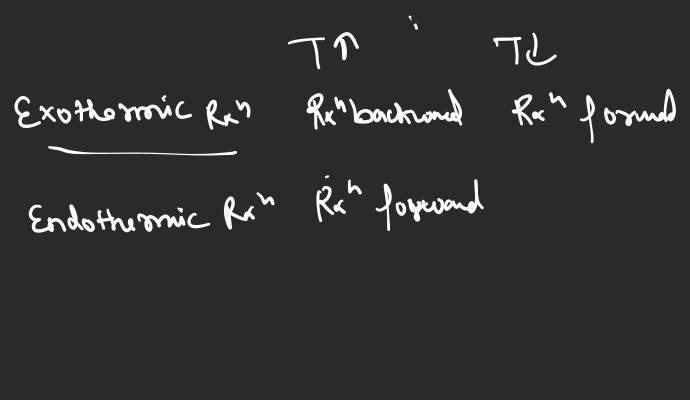 T↑ T↓
Exothermic Rxⁿ Rxⁿ backward Rxⁿ forward
Endothermic Rxⁿ Rxⁿ forward